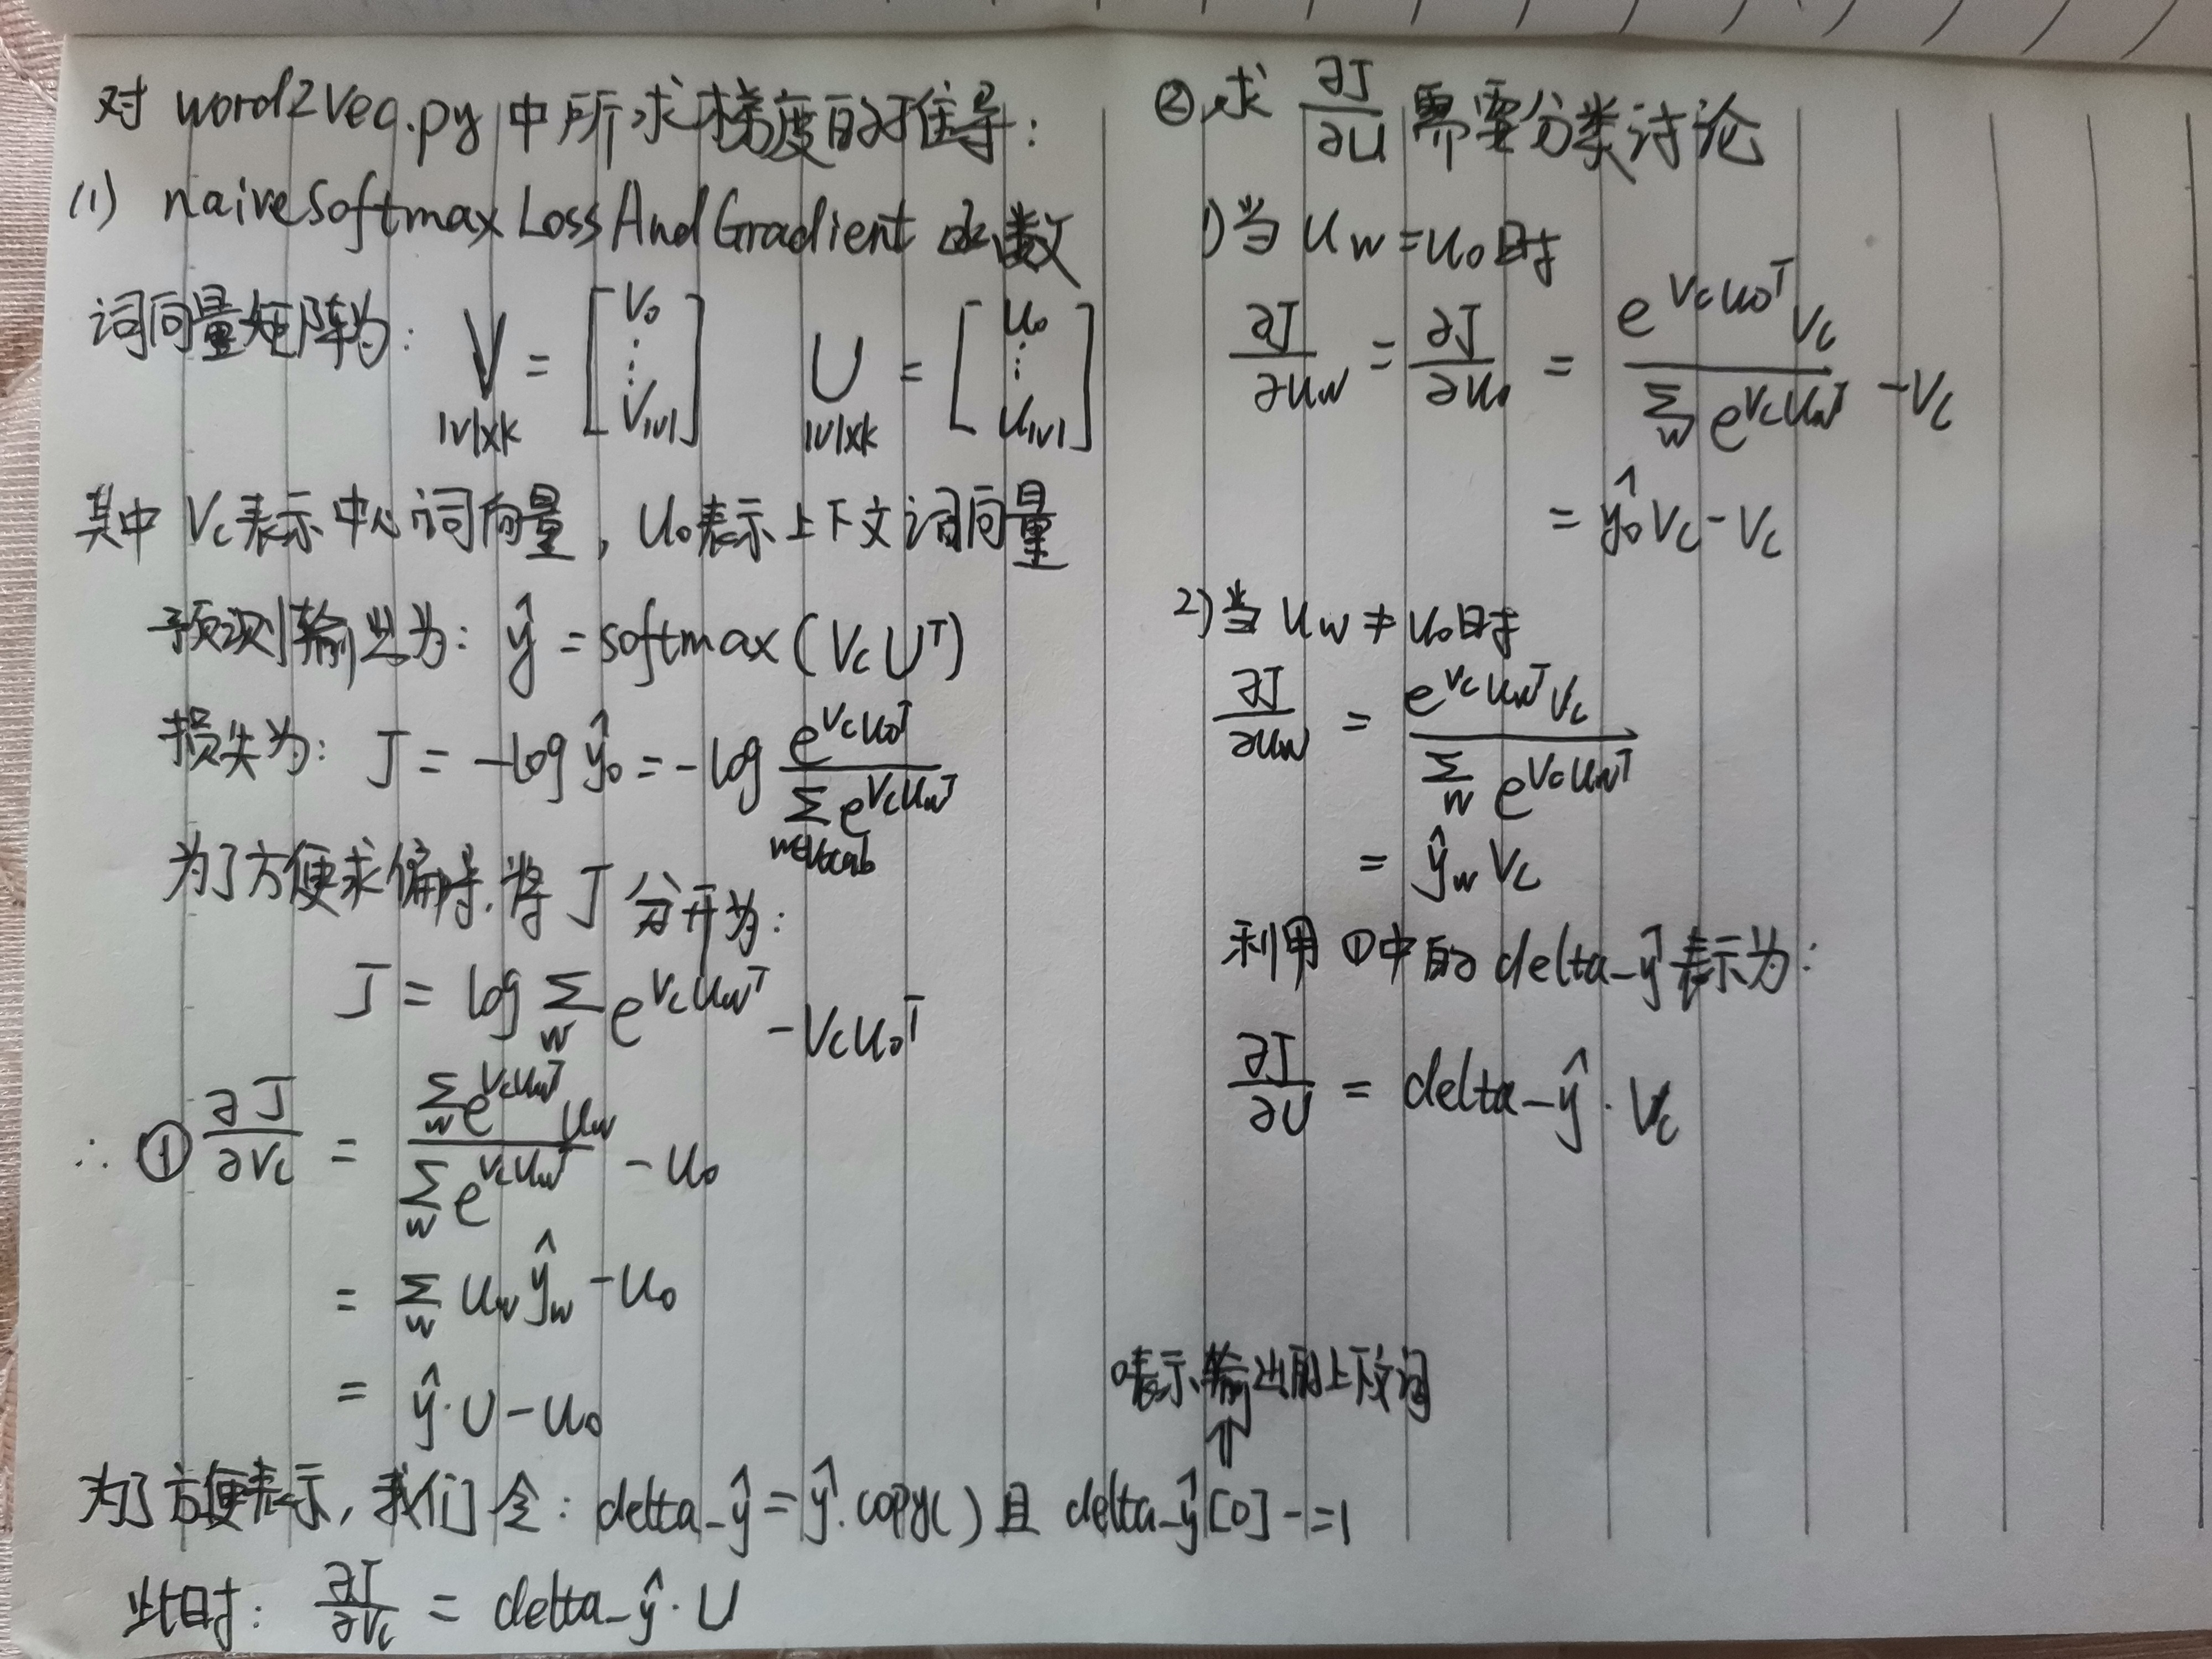 对 word2vec.py 中所求梯度的推导:
(1) naiveSoftmaxLossAndGradient 函数
词向量矩阵为: V = [V₀ ⋮ V|v|] U = [u₀ ⋮ u|v|]
|v|×k |v|×k
其中 Vc表示中心词向量, u₀表示上下文词向量
预测输出为: ŷ = softmax(Vc Uᵀ)
损失为: J = -log ŷ₀ = -log e^(Vc u₀ᵀ) / Σ_(w∈Vocab) e^(Vc u_wᵀ)
为了方便求偏导,将 J 分开为:
J = log Σ_w e^(Vc u_wᵀ) - Vc u₀ᵀ
∴ ① ∂J/∂Vc = Σ_w e^(Vc u_wᵀ) u_w / Σ_w e^(Vc u_wᵀ) - u₀
= Σ_w u_w ŷ_w - u₀
= ŷ·U - u₀
为了方便表示, 我们令: delta_ŷ = ŷ.copy() 且 delta_ŷ[0] -=1
此时: ∂J/∂Vc = delta_ŷ·U
②求 ∂J/∂U 需要分类讨论
1)当 u_w = u₀时
∂J/∂u_w = ∂J/∂u₀ = e^(Vc u₀ᵀ) Vc / Σ_w e^(Vc u_wᵀ) - Vc
= ŷ₀Vc - Vc
2)当 u_w ≠ u₀时
∂J/∂u_w = e^(Vc u_wᵀ) Vc / Σ_w e^(Vc u_wᵀ)
= ŷ_w Vc
利用①中的 delta_ŷ 表示为:
∂J/∂U = delta_ŷ · Vc
0表示输出的上下文词
⇑